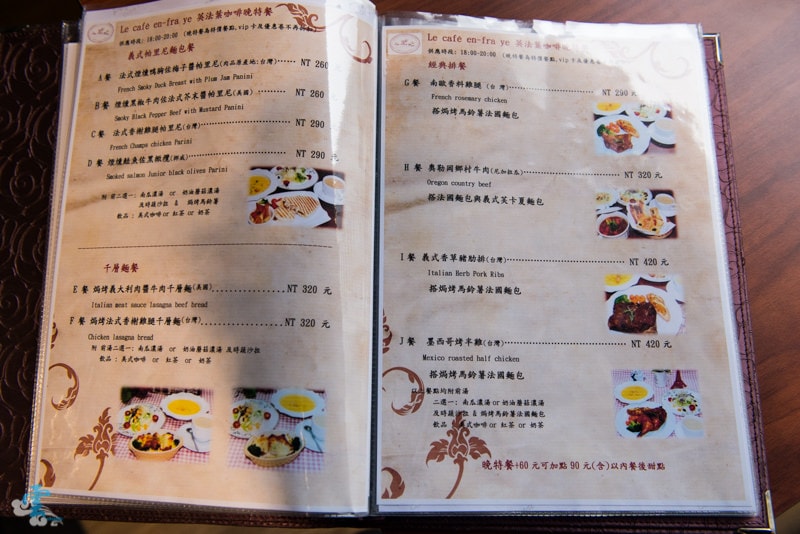 Le café en-fra ye 英法葉咖啡晚特餐
供應時段: 18:00-20:00 (晚特餐為特價餐點,vip卡及優惠券不再
義式帕里尼麵包餐
A餐 法式煙燻鴨胸佐梅子醬帕里尼(肉品原產地:台灣)······ NT 260
French Smoky Duck Breast with Plum Jam Panini
B餐 煙燻黑椒牛肉佐法式芥末醬帕里尼(美國)············ NT 260
Smoky Black Pepper Beef with Mustard Panini
C餐 法式香榭雞腿帕里尼(台灣)·················· NT 290
French Champs chicken Parini
D餐 煙燻鮭魚佐黑橄欖(挪威)·················· NT 290 元
Smoked salmon Junior black olives Parini
附前二選一: 南瓜濃湯 or 奶油蘑菇濃湯
及時蔬沙拉 & 焗烤馬鈴薯
飲品: 美式咖啡 or 紅茶 or 奶茶
千層麵餐
E餐 焗烤義大利肉醬牛肉千層麵(美國)................NT 320 元
Italian meat sauce lasagna beef bread
F餐 焗烤法式香榭雞腿千層麵(台灣)..................NT 320 元
Chicken lasagna bread
附前湯二選一: 南瓜濃湯 or 奶油蘑菇濃湯 及時蔬沙拉
飲品: 美式咖啡 or 紅茶 or 奶茶
Le café en-fra ye 英法葉咖啡晚
供應時段: 18:00-20:00 (晚特餐為特價餐點,vip卡及優惠
經典排餐
G餐 南歐香料雞腿 (台灣)·················· NT 290 元
French rosemary chicken
搭焗烤馬鈴薯法國麵包
H餐 奧勒岡鄉村牛肉(尼加拉瓜)·················· NT 320 元
Oregon country beef
搭法國麵包與義式芙卡夏麵包
I餐 義式香草豬肋排(台灣)·················· NT 420 元
Italian Herb Pork Ribs
搭焗烤馬鈴薯法國麵包
J餐 墨西哥烤半雞(台灣)·················· NT 420 元
Mexico roasted half chicken
搭焗烤馬鈴薯法國麵包
餐點均附前湯
二選一: 南瓜濃湯 or 奶油蘑菇濃湯
及時蔬沙拉 & 焗烤馬鈴薯法國麵包
飲品: 美式咖啡 or 紅茶 or 奶茶
晚特餐+60元可加點 90元(含)以內餐後甜點